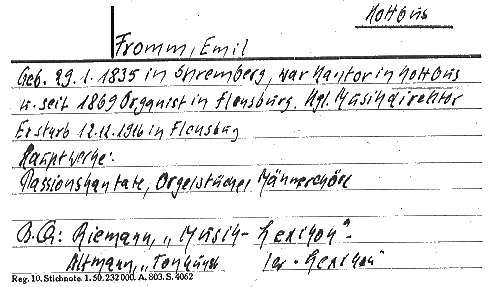 Kottbus
Fromm, Emil
Geb. 29.1.1835 in Spremberg, war Kantor in Kottbus
u. seit 1869 Organist in Flensburg. Kgl. Musikdirektor
Er starb 12.12.1916 in Flensburg
Hauptwerke:
Passionskantate, Orgelstücke, Männerchöre
B.Q: Riemann, "Musik-Lexikon"-
Altmann, "Tonkünst ler-Lexikon"
Reg. 10. Stichnote. 1. 50. 232000. A. 803. S. 4062